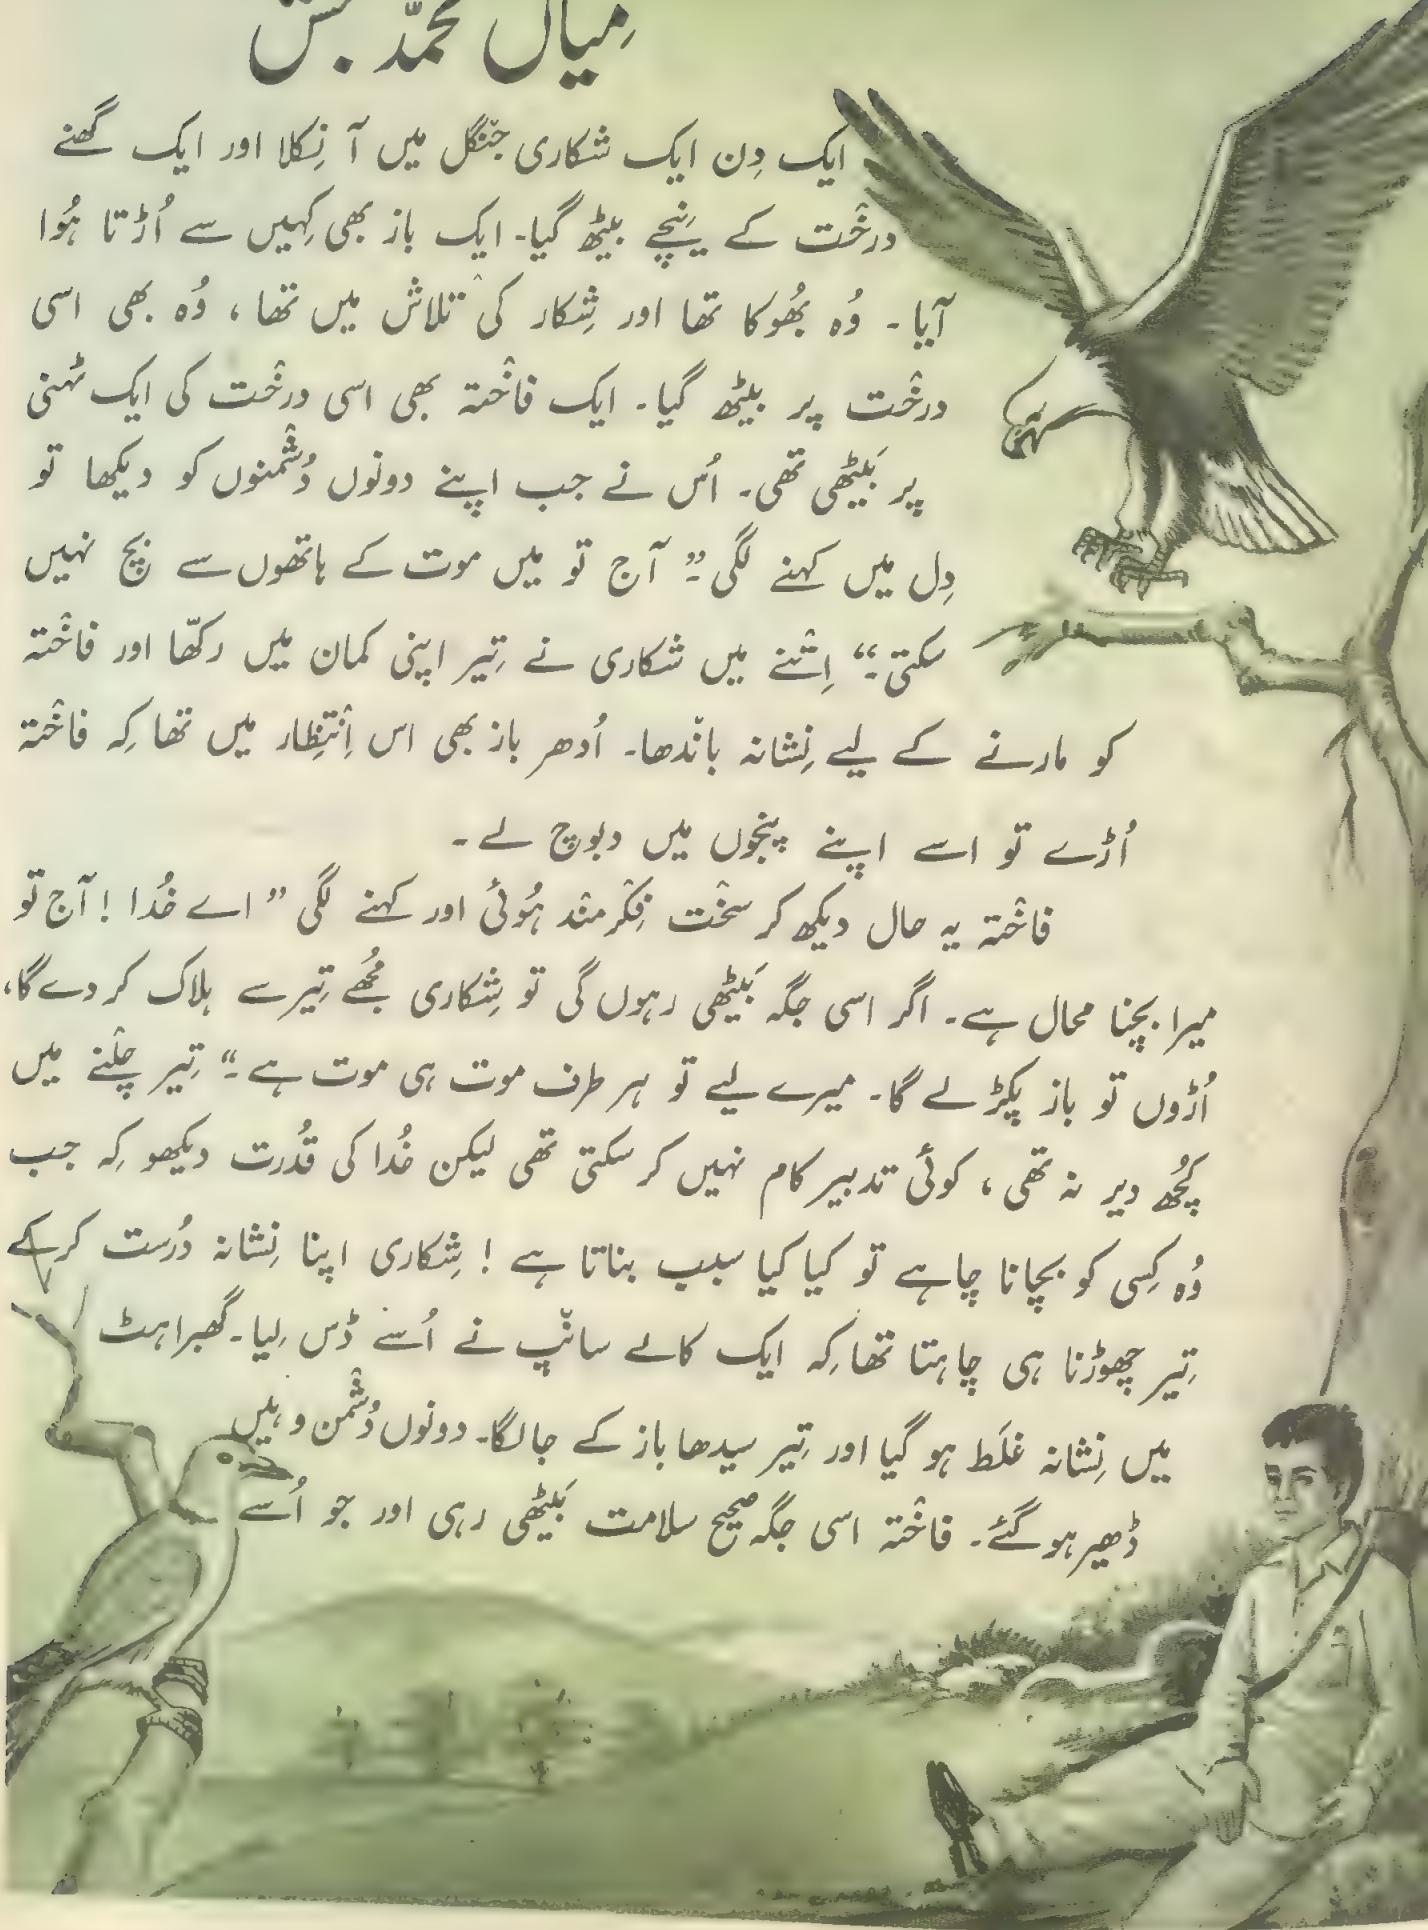 میاں محمّد بخش
ایک دِن ایک شکاری جنْگل میں آ نِکلا اور ایک گھنے
درخْت کے نِیچے بیٹھ گیا۔ ایک باز بھی کہِیں سے اُڑتا ہُوا
آیا۔ وُہ بھُوکا تھا اور شِکار کی تلاش میں تھا، وُہ بھی اسی
درخْت پر بیٹھ گیا۔ ایک فاخْتہ بھی اسی درخْت کی ایک ٹہنی
پر بَیٹھی تھی۔ اُس نے جب اپنے دونوں دُشْمنوں کو دیکھا تو
دِل میں کہنے لگی۔” آج تو میں موت کے ہاتھوں سے بچ نہیں
سکتی۔“ اِتْنے میں شکاری نے تِیر اپنی کمان میں رکھّا اور فاخْتہ
کو مارنے کے لیے نِشانہ بانْدھا۔ اُدھر باز بھی اس اِنْتِظار میں تھا کِہ فاخْتہ
اُڑے تو اسے اپنے پنجوں میں دبوچ لے۔
فاخْتہ یہ حال دیکھ کر سخْت فِکْرمنْد ہُوئی اور کہنے لگی ” اے خُدا ! آج تو
میرا بچنا محال ہے۔ اگر اسی جگہ بَیٹھی رہوں گی تو شِکاری مُجھے تِیر سے ہلاک کر دے گا،
اُڑوں تو باز پکڑ لے گا۔ میرے لیے تو ہر طرف موت ہی موت ہے۔“ تِیر چلْنے میں
کُچھ دیر نہ تھی، کوئی تدبیر کام نہیں کر سکتی تھی لیکن خُدا کی قُدْرت دیکھو کِہ جب
وُہ کِسی کو بچانا چاہے تو کیا کیا سبب بناتا ہے ! شِکاری اپنا نِشانہ دُرست کر کے
تِیر چھوڑنا ہی چاہتا تھا کِہ ایک کالے سانْپ نے اُسے ڈس لِیا۔ گھبراہٹ
میں نِشانہ غلَط ہو گیا اور تِیر سیدھا باز کے جا لگا۔ دونوں دُشْمن وہیں
ڈھیر ہو گئے۔ فاخْتہ اسی جگہ صحیح سلامت بَیٹھی رہی اور جو اُسے